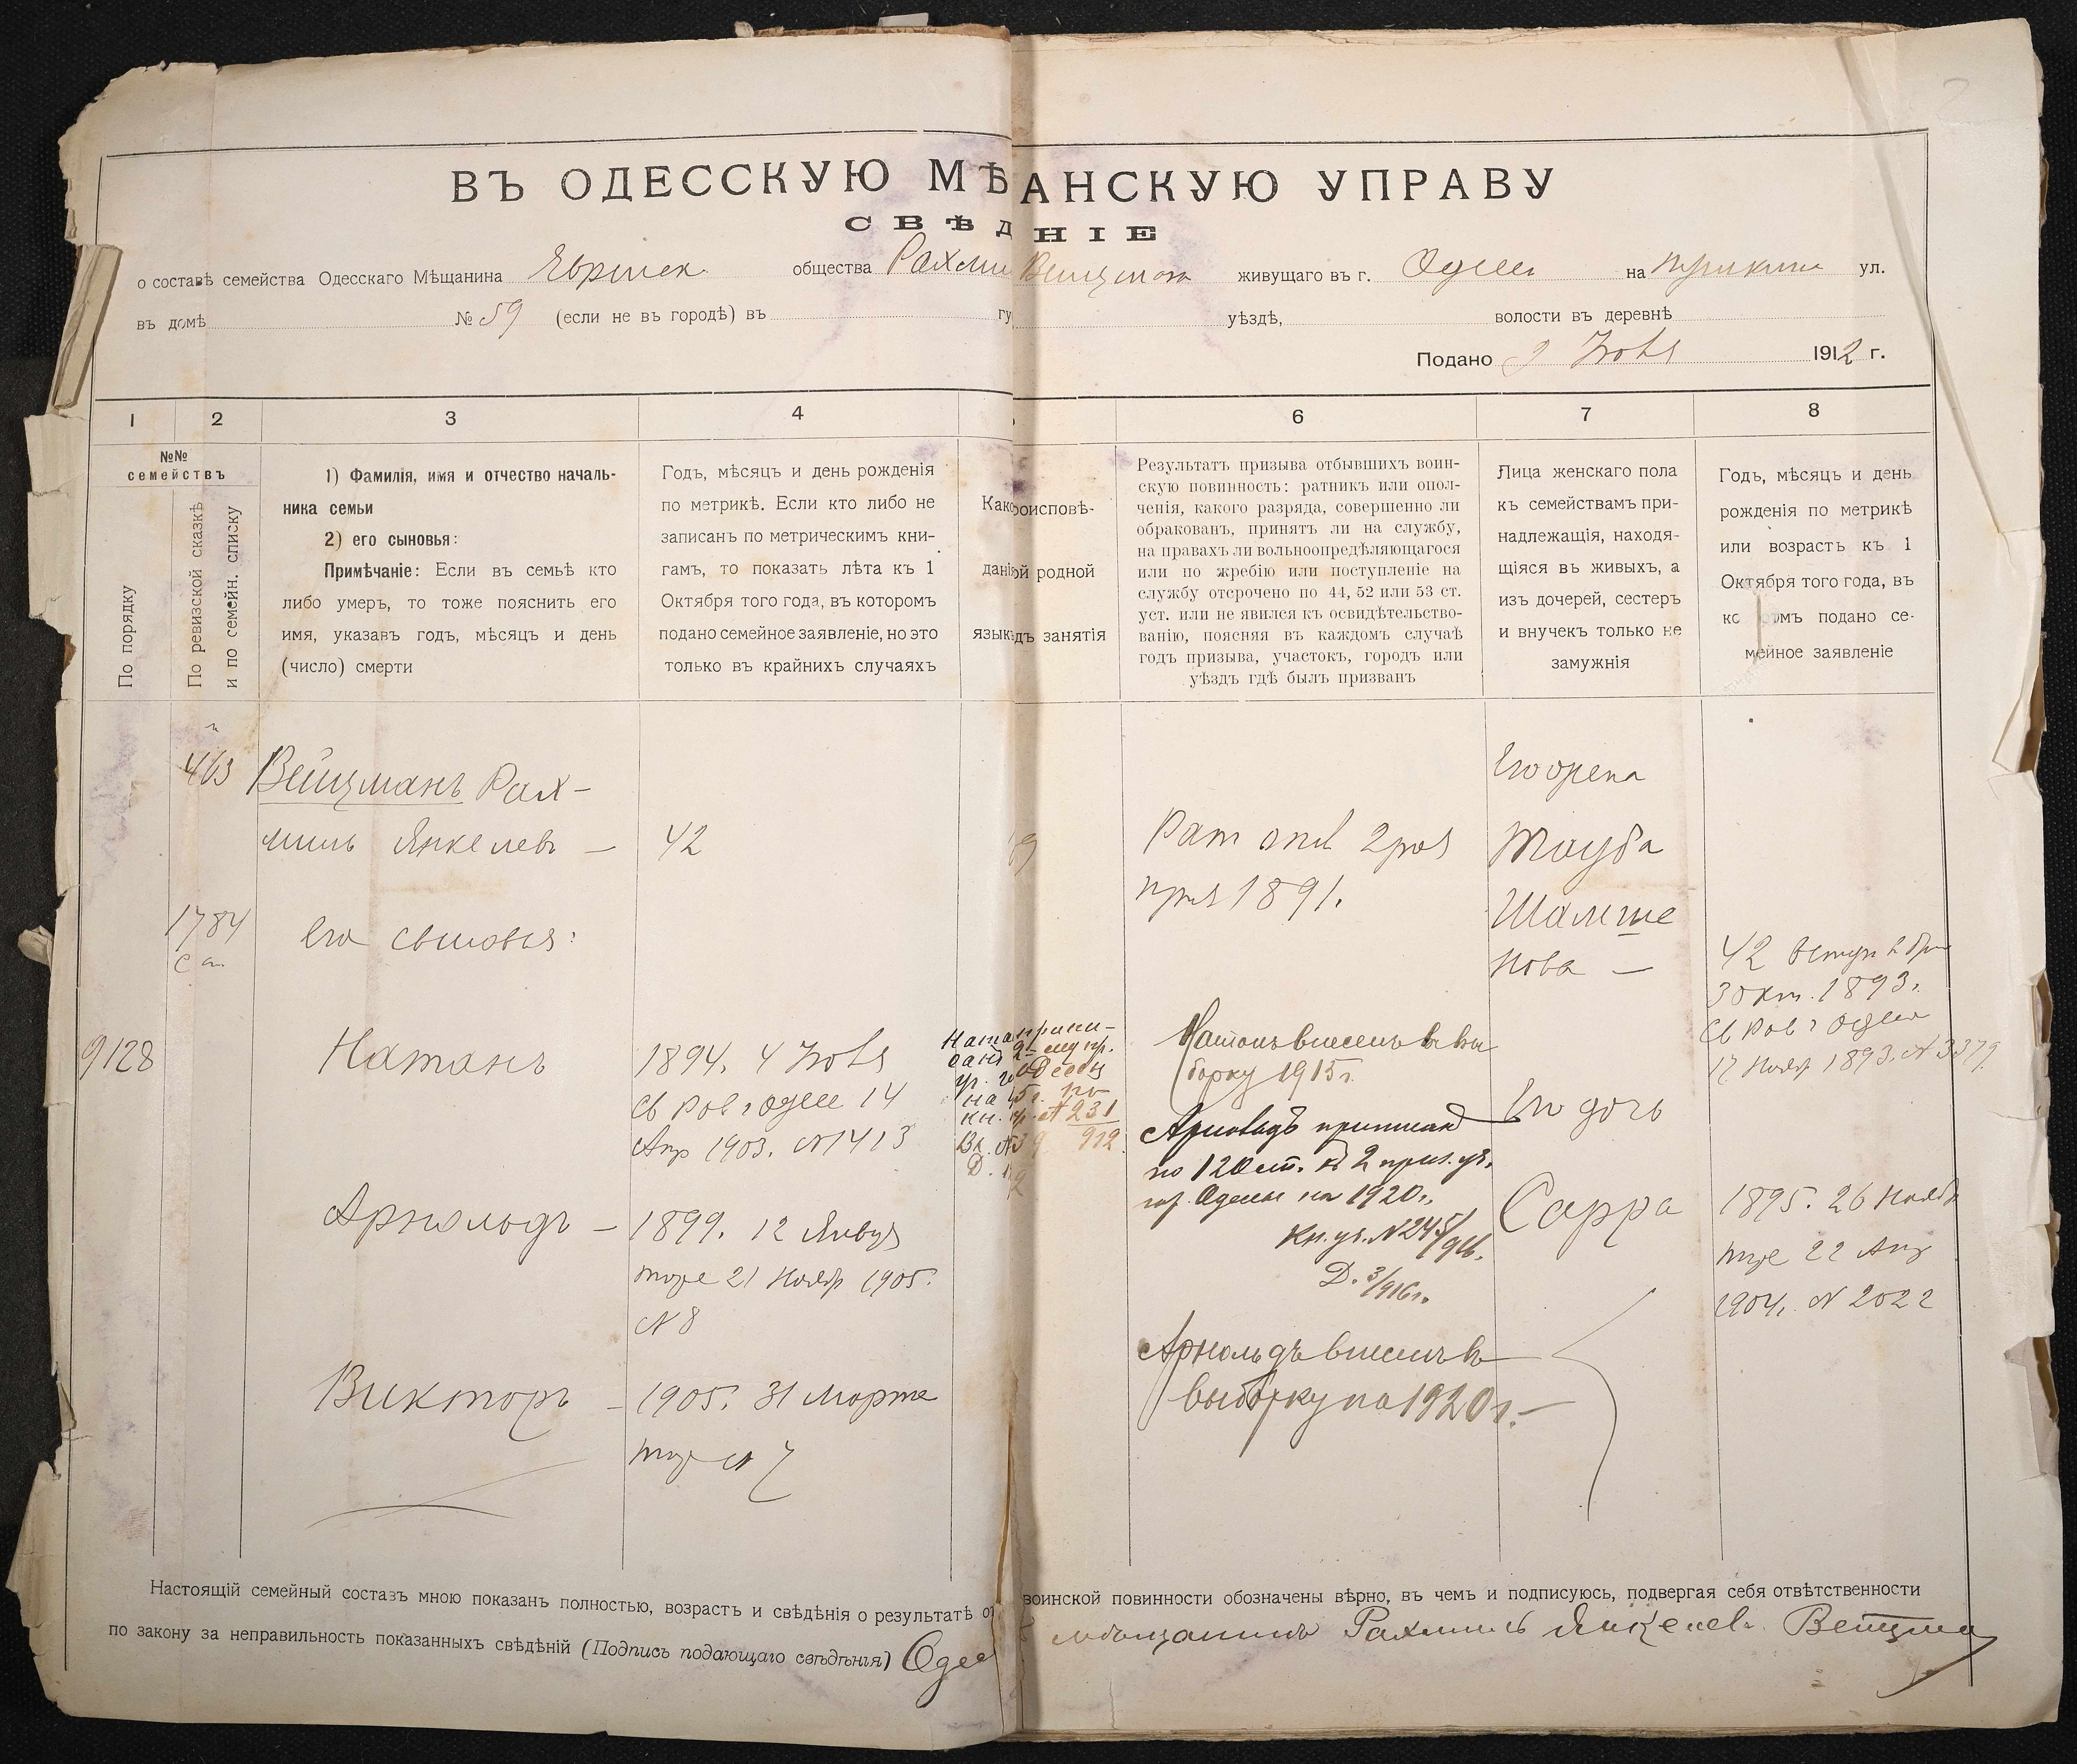 ВЪ ОДЕССКУЮ МѢ АНСКУЮ УПРАВУ
СВѢД НІЕ
о составѣ семейства Одесскаго Мѣщанина общества Рахми живущаго въ г. Одессе на ул.
въ домѣ № 59 (если не въ городѣ) въ гу уѣздѣ, волости въ деревнѣ
Подано 1912 г.
1 2 3 4 6 7 8
№№
семействъ
По порядку
По ревизской сказкѣ
и по семейн. списку
1) Фамилія, имя и отчество началь-
ника семьи
2) его сыновья:
Примѣчаніе: Если въ семьѣ кто
либо умеръ, то тоже пояснить его
имя, указавъ годъ, мѣсяцъ и день
(число) смерти
Годъ, мѣсяцъ и день рожденія
по метрикѣ. Если кто либо не
записанъ по метрическимъ кни-
гамъ, то показать лѣта къ 1
Октября того года, въ которомъ
подано семейное заявленіе, но это
только въ крайнихъ случаяхъ
Како роисповѣ-
дані ой родной
язык дъ занятія
Результатъ призыва отбывшихъ воин-
скую повинность: ратникъ или опол-
ченія, какого разряда, совершенно ли
обракованъ, принятъ ли на службу,
на правахъ ли вольноопредѣляющагося
или по жребію или поступленіе на
службу отсрочено по 44, 52 или 53 ст.
уст. или не явился къ освидѣтельство-
ванію, поясняя въ каждомъ случаѣ
годъ призыва, участокъ, городъ или
уѣздъ гдѣ былъ призванъ
Лица женскаго пола
къ семействамъ при-
надлежащія, находя-
щіяся въ живыхъ, а
изъ дочерей, сестеръ
и внучекъ только не
замужнія
Годъ, мѣсяцъ и день
рожденія по метрикѣ
или возрастъ къ 1
Октября того года, въ
ко омъ подано се-
мейное заявленіе
463 Вейцманъ Рах-
миль Янкелевъ — 42
1784
его сыновья:
9128 Натанъ 1894. 4
14
Апр 1903. №1413
Арнольдъ — 1899. 12
тоже 21 Ноябр 1905.
№ 8
Викторъ — 1905. 31 Марта
тоже № 7
Рат опл 2 раз
1891.
Натанъ внесенъ въ вы
борку 1915 г.
Арнольдъ приписан
по 120 ст. къ 2 приз. уч.
гор. Одессы на 1920 г.
Кн. уч. № 245/916.
Д. 3/916 г.
Арнольдъ внесенъ въ
выборку на 1920 г. —
Его жена
Тауба
Шальше
нова —
Его дочь
Сарра
42
3 окт. 1893.
17 Нояб 1893. № 3379
1895. 26 Нояб
тоже 22 Апр
1904. № 2022
Настоящій семейный составъ мною показанъ полностью, возрастъ и свѣдѣнія о результатѣ от воинской повинности обозначены вѣрно, въ чемъ и подписуюсь, подвергая себя отвѣтственности
по закону за неправильность показанныхъ свѣдѣній (Подпись подающаго свѣдѣнія) Одес мѣщанинъ Рахмиль Янкелев Вейцман